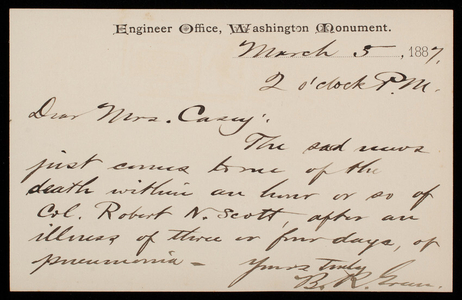 Engineer Office, Washington Monument.
March 5, 1887,
2 o'clock P.M.
Dear Mrs. Casey:
The sad news
just comes to me of the
death within an hour or so of
Col. Robert N. Scott, after an
illness of three or four days, of
pneumonia -
Yours truly
B. R. Green.